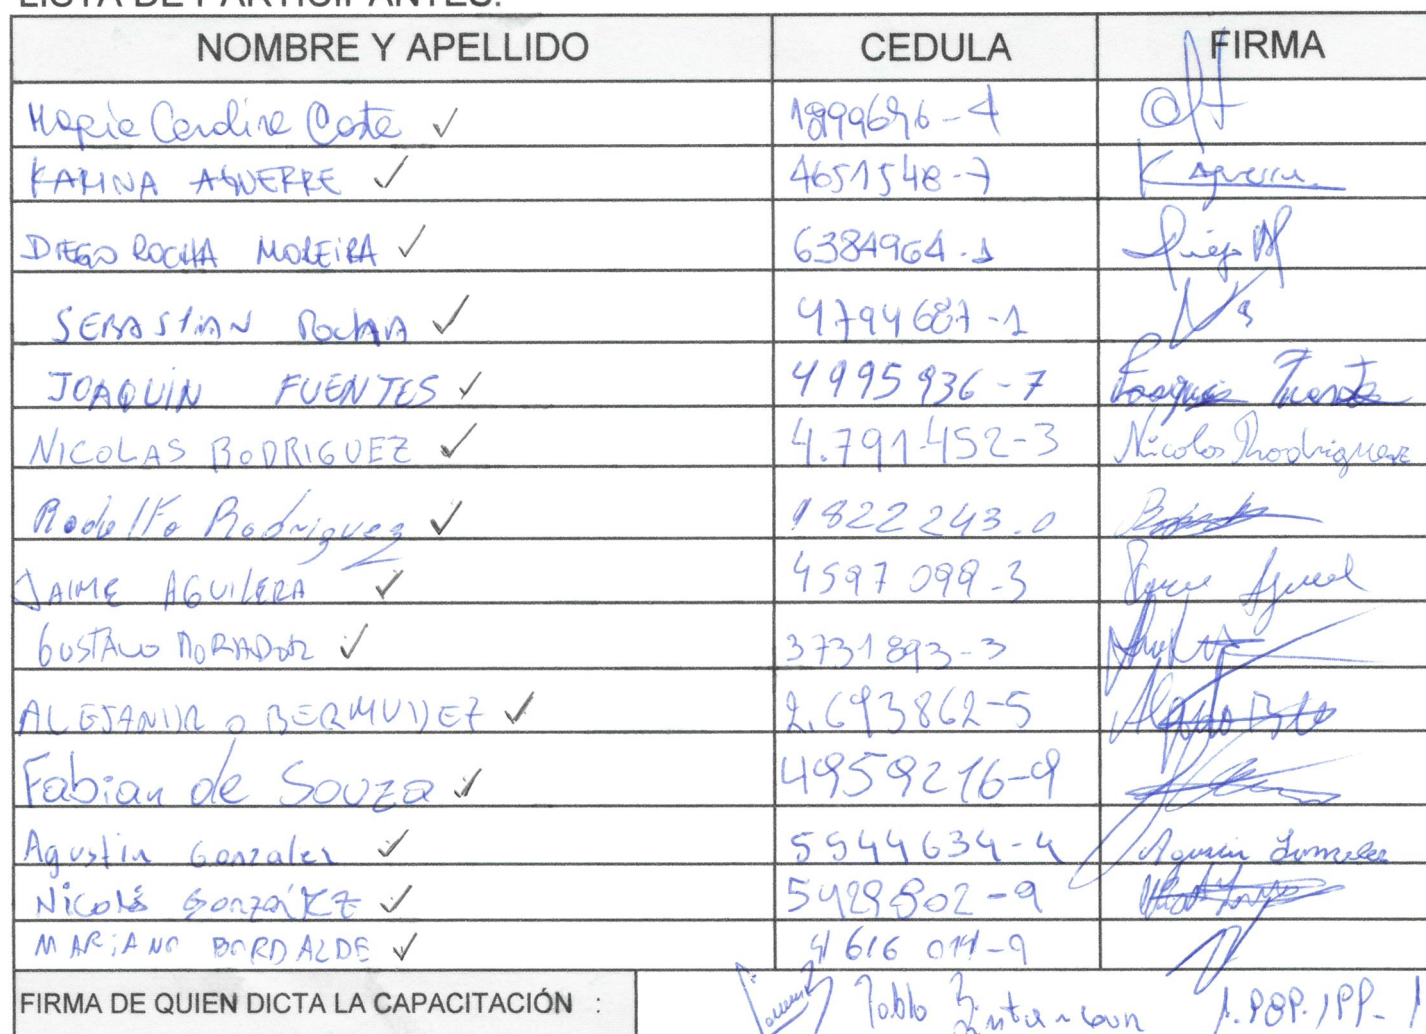 LISTA DE PARTICIPANTES:
NOMBRE Y APELLIDO CEDULA FIRMA
Maria Carolina Costa ✓ 1899696-4
KARINA AGUERRE ✓ 4651548-7 K Aguerre
DIEGO ROCHA MOREIRA ✓ 6384964-1 Diego M
SEBASTIAN ROCHA ✓ 4794687-1
JOAQUIN FUENTES ✓ 4995936-7 Joaquin Fuentes
NICOLAS RODRIGUEZ ✓ 4.791.452-3 Nicolas Rodriguez
Rodolfo Rodriguez ✓ 1822243.0
JAIME AGUILERA ✓ 4597099-3
GUSTAVO MORADOR ✓ 3731893-3
ALEJANDRO BERMUDEZ ✓ 2.693862-5
Fabian de Souza ✓ 4959216-9
Agustin Gonzalez ✓ 5544634-4 Agustin Gonzalez
Nicolás González ✓ 5429802-9
MARIANO BORDALDE ✓ 4616014-9
FIRMA DE QUIEN DICTA LA CAPACITACIÓN : Pablo